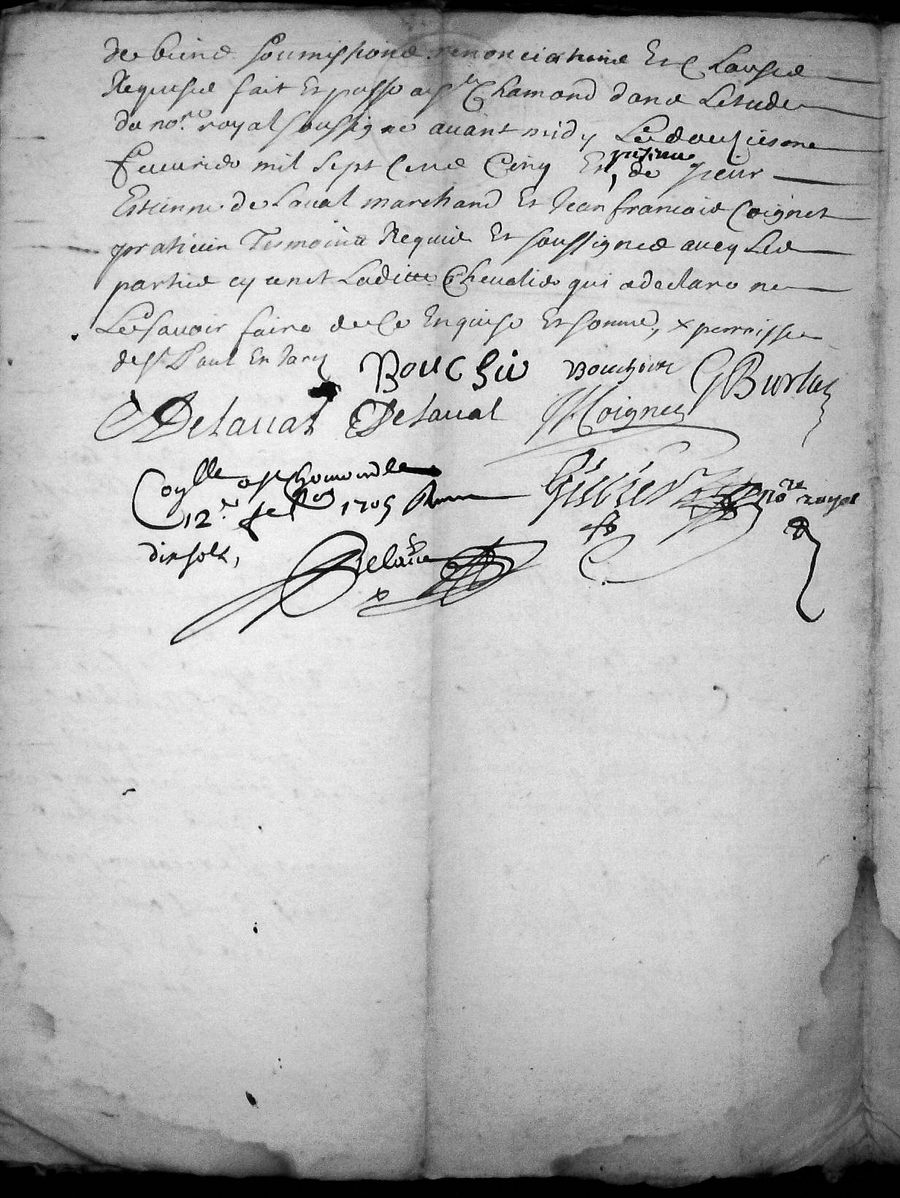 de biens soumissions renonciations Et Clauses
Requises fait Et passé a St Chamond dans Letude
du nore royal soussigné avant midy Le douziesme
feuvrier mil sept Cens Cinq Et de sieur
presence
Estienne de Laval marchand Et Jean francois Coignet
praticien Tesmoins Requis Et soussignés avec Les
parties excepté Laditte Chevalier qui a declaré ne
Le savoir faire de Ce Enquise Et sommé, x perroisse
de St Paul En Jarez Bouchiu Bouchiu G Burlas
Delaval Delaval JF Coignet
Coñllé a St Chamond le Guiuier nore royal
12e febr 1705
dix sols, Delaire